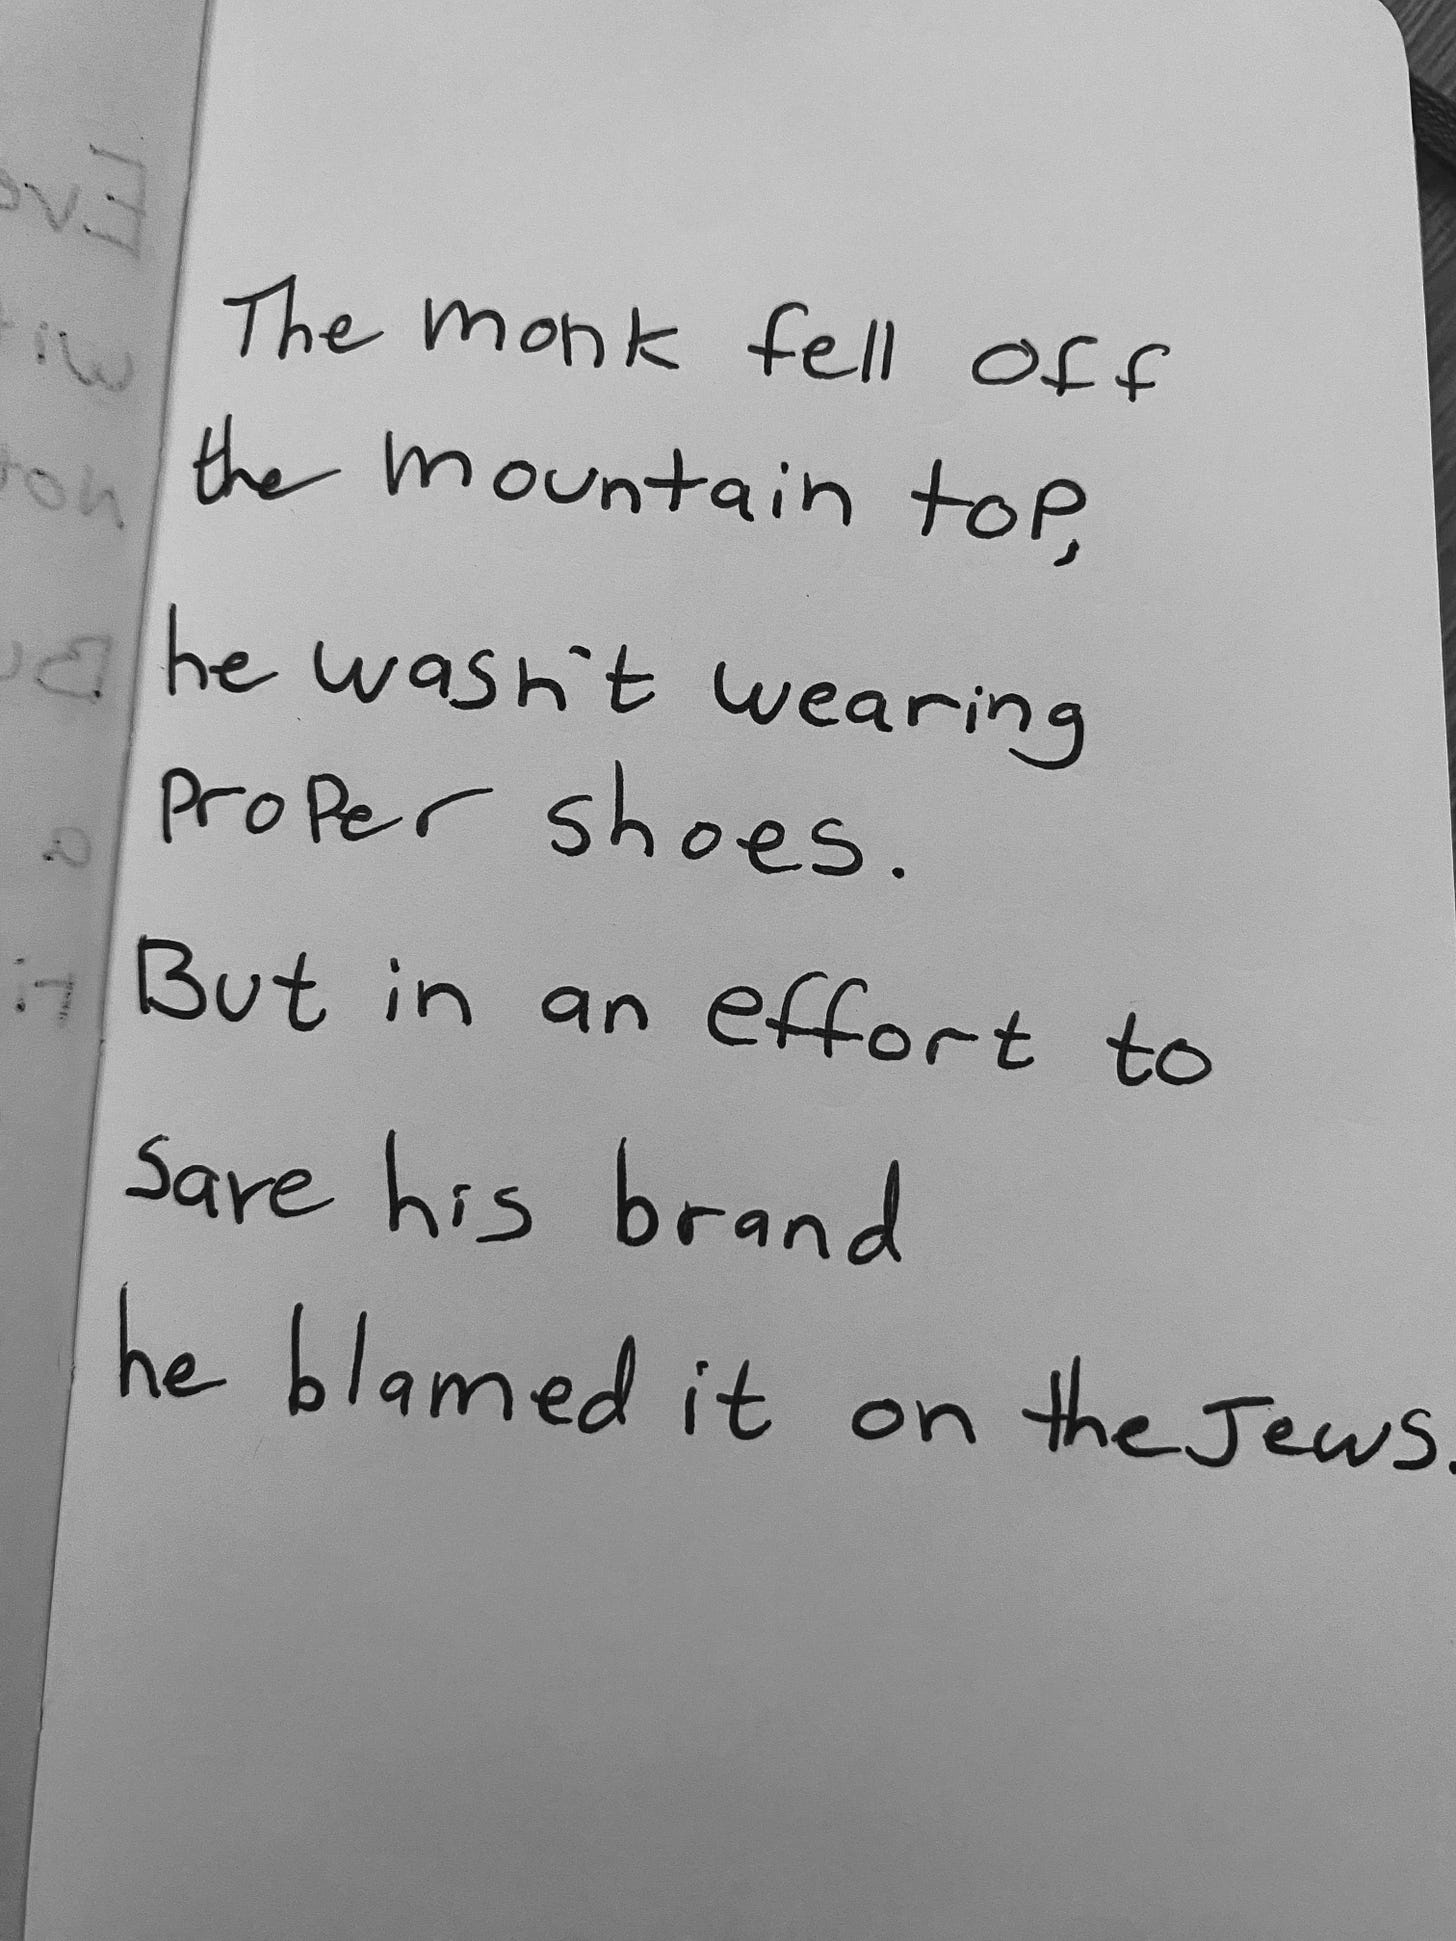 The monk fell off
the mountain top,
he wasn't wearing
proper shoes.
But in an effort to
save his brand
he blamed it on the Jews.